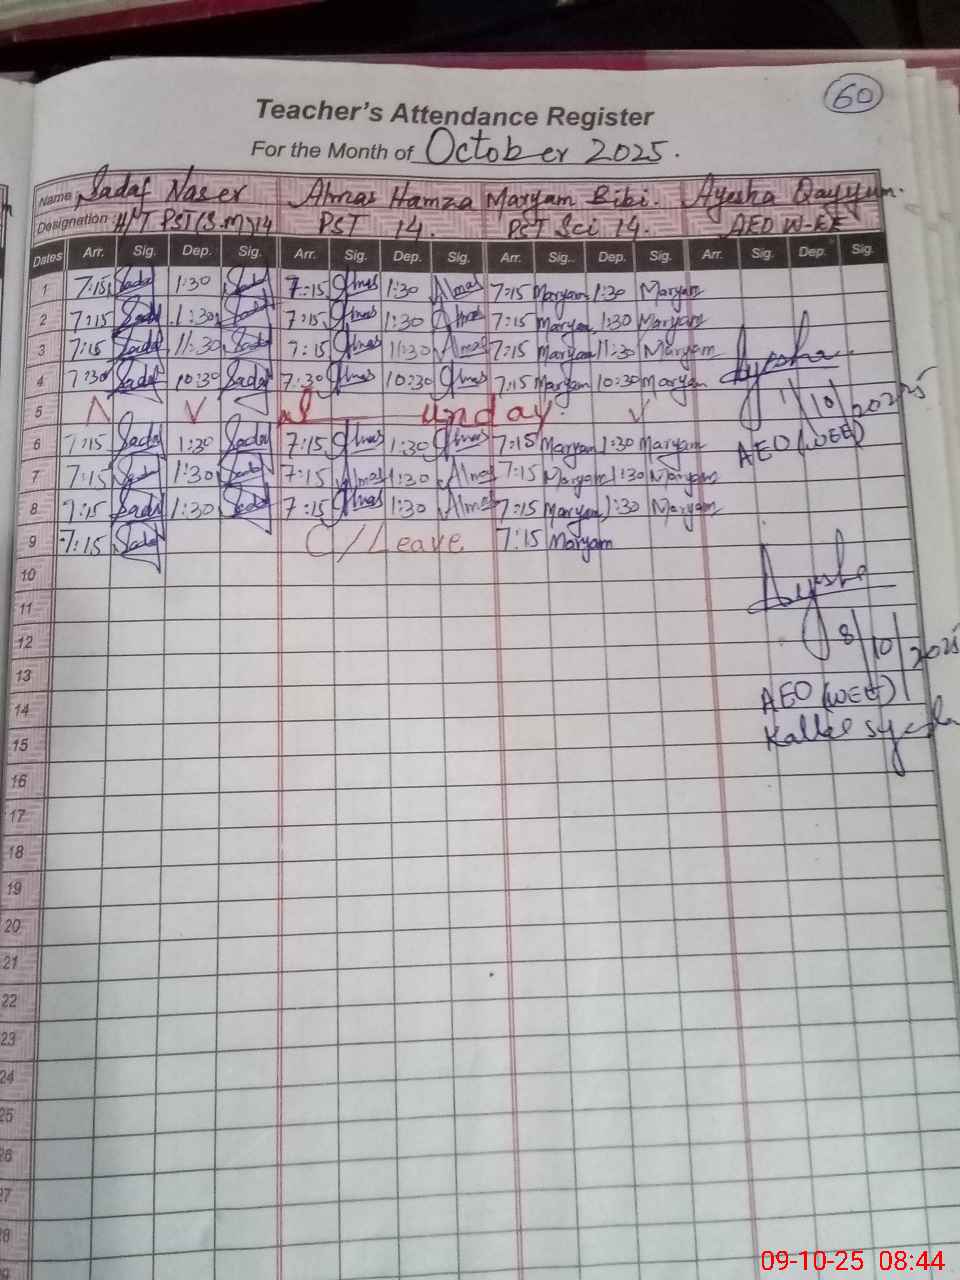 60
Teacher's Attendance Register
For the Month of October 2025.
Name Sadaf Naser Almas Hamza Maryam Bibi. Ayesha Qayyum.
Designation H/T PST(S.M)14 PST 14. PST Sci 14. AEO W-EE
Dates Arr. Sig. Dep. Sig. Arr. Sig. Dep. Sig. Arr. Sig. Dep. Sig. Arr. Sig. Dep. Sig.
1 7:15 Sadaf 1:30 Sadaf 7:15 Almas 1:30 Almas 7:15 Maryam 1:30 Maryam
2 7:15 Sadaf 1:30 Sadaf 7:15 Almas 1:30 Almas 7:15 Maryam 1:30 Maryam
3 7:15 Sadaf 11:30 Sadaf 7:15 Almas 11:30 Almas 7:15 Maryam 11:30 Maryam Ayesha
4 7:30 Sadaf 10:30 Sadaf 7:30 Almas 10:30 Almas 7:15 Maryam 10:30 Maryam 1/10/2025
5 unday
AEO (WEE)
6 7:15 Sadaf 1:30 Sadaf 7:15 Almas 1:30 Almas 7:15 Maryam 1:30 Maryam
7 7:15 Sadaf 1:30 Sadaf 7:15 Almas 1:30 Almas 7:15 Maryam 1:30 Maryam
8 7:15 Sadaf 1:30 Sadaf 7:15 Almas 1:30 Almas 7:15 Maryam 1:30 Maryam
9 7:15 Sadaf C/Leave 7:15 Maryam
10 Ayesha
11
12 8/10/2025
13
14 AEO (WEE)
15 Kaller Syedan
16
17
18
19
20
21
22
23
24
25
26
27
28
09-10-25 08:44